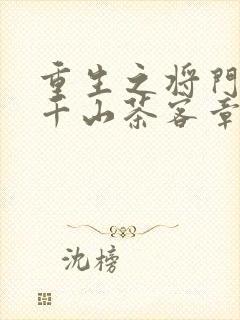 重生之将門
千山茶客章
沈榜